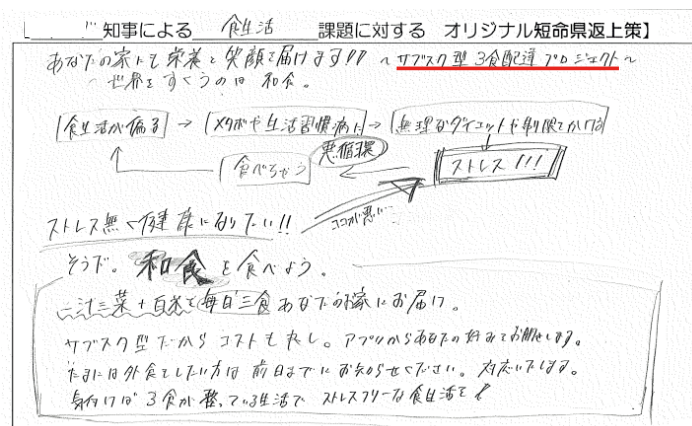 知事による 食生活 課題に対する オリジナル短命県返上策】
あなたの家にも栄養と笑顔を届けます!! ~ サブスク型 3食配達プロジェクト ~
~世界をすくうのは 和食。
食生活が偏る → メタボや生活習慣病に → 無理なダイエットや制限をかける
悪循環
食べちゃう ← ストレス!!!
ストレス無く健康になりたい!! ココが悪い…
そうだ。和食を食べよう。
一汁三菜+白米を毎日三食あなたのお家にお届け。
サブスク型だからコストも安し。アプリからあなたの好みでお届けします。
たまには外食をしたい方は前日までにお知らせください。対応いたします。
気付けば3食が整っている生活で ストレスフリーな食生活を!